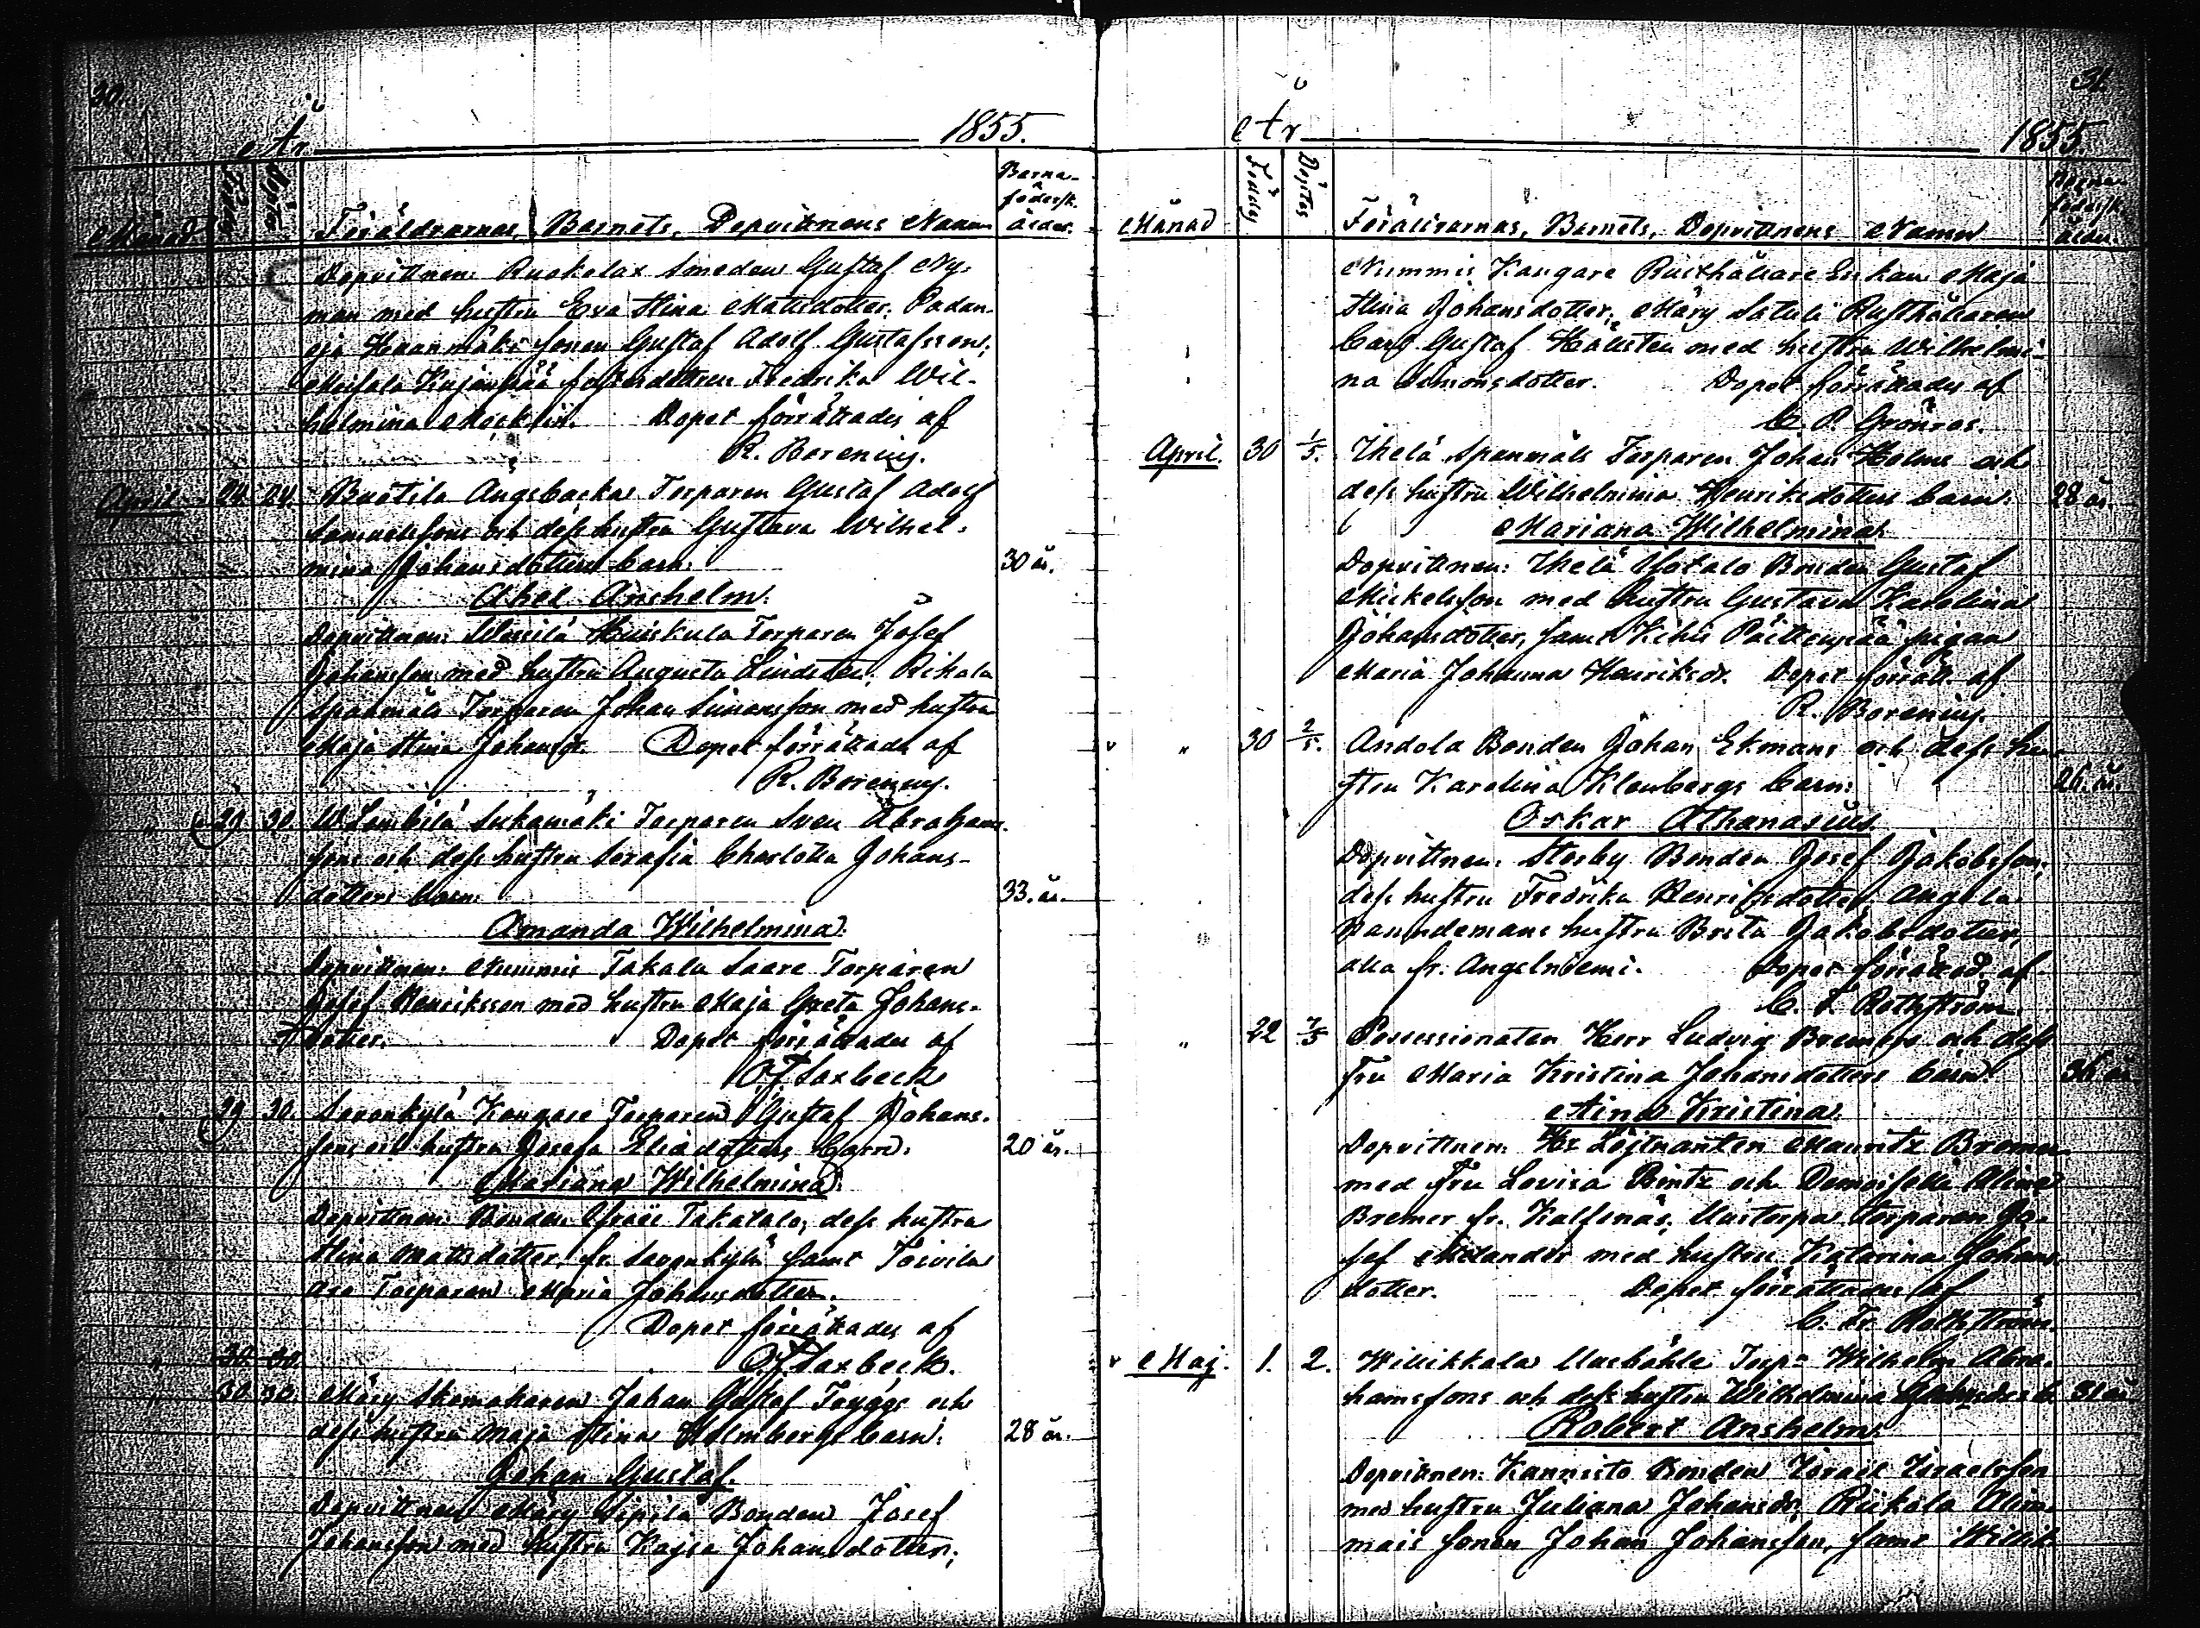 30.
År 1855.
Månad Födde Döpte Föräldrarnas, Barnets, Dopvittnens Namn Barna-
födersk.
ålder.
Dopvittnen: Ruokolax Smeden Gustaf Ny-
man med hustru Eva Stina Mattsdotter, Padan-
oja sonen Gustaf Adolf Gustafsson;
Fredrika Wil-
helmina Dopet förrättades af
R. Borenius.
April 24. 24. Buotila Ängsbacka Torparen Gustaf Adolf
Samuelssons och dess hustru Gustava Wilhel-
mina Johansdotters barn. 30 år.
Axel Anshelm.
Dopvittnen: Huiskula Torparen Josef
Johansson med hustru Augusta Rikala
Spanmäls Torparen Johan Simonsson med hustru
Maja Stina Johansdr. Dopet förrättades af
R. Borenius.
„ 29. 30. Suksmäki Torparen Sven Abrahams-
sons och dess hustru Serafia Charlotta Johans-
dotters barn. 33. år.
Amanda Wilhelmina.
Dopvittnen: Nummis Takala Saare Torparen
Josef Henriksson med hustru Maja Greta Johans-
dotter. Dopet förrättades af
O. F. Saxbeck
„ 29 30. Savonkylä Kangare Torparen Gustaf Johans-
sons och hustru Josefa Eliædotters barn. 20 år.
Mariana Wilhelmina.
Dopvittnen: Bonden Takatalo, dess hustru
Stina Mattsdotter, fr. Savonkylä samt Toivila
Torparen Maria Johansdotter.
Dopet förrättades af
„ 30 30. O. F. Saxbeck.
„ 30. 30. Märy Skomakaren Johan Gustaf Tryggs och
dess hustru Maja Stina Holmbergs barn. 28 år.
Johan Gustaf.
Dopvittnen: Märy Sipilä Bonden Josef
Johansson med hustru Kajsa Johansdotter;
31.
År 1855.
Månad Födde Döptes Föräldrarnas, Barnets, Dopvittnens Namn
födersk.
ålder.
Nummis Kangare Rusthållare Enkan Maja
Stina Johansdotter, Märy Satuli Rusthållaren
Carl Gustaf Hällsten med hustru Wilhelmi-
na Simonsdotter. Dopet förrättades af
C. P. Grönros.
April. 30 1/5. Ihelä Spanmäls Torparen Johan Holms och
dess hustru Wilhelmina Henriksdotters barn. 28 år.
Mariana Wilhelmina.
Dopvittnen: Ihelä Bonden Gustaf
Mickelsson med hustru Gustava Karolina
Johansdotter, samt Kihis pigan
Maria Johanna Henriksdr. Dopet förrätt. af
R. Borenius.
v „ 30 2/5. Andola Bonden Johan Ekmans och dess hu-
stru Karolina Klenbergs barn: 26. år.
Oskar Athanasius.
Dopvittnen: Storby Bonden Josef Jakobsson,
dess hustru Fredrika Henriksdotter, Angela
Nämndemans hustru Brita Jakobsdotter,
alla fr. Angelniemi. Dopet förrättad. af
C. F. Rothström.
„ 22 7/5 Possessionaten Herr Ludvig Bremers och dess
Fru Maria Kristina Johansdotters barn. 36 år
Aina Kristina.
Dopvittnen: Hr Löjtnanten Mauritz Bremer
med Fru Lovisa Bintz och Demoiselle Alina
Bremer fr. Kalfsnäs, Uustorpa torparen Jo-
sef Melander med hustru Katarina Johans-
dotter. Dopet förrättades af
C. Fr. Rothström.
v Maj. 1. 2. Willikkala Torp= Wilhelm Abra-
hamssons och dess hustru Wilhelmina b. 31 år
Robert Anshelm.
Dopvittnen: Kannisto Bonden Israel Israelsson
med hustru Juliana Johansdr, Rikala
sonen Johan Johansson, samt Willik-